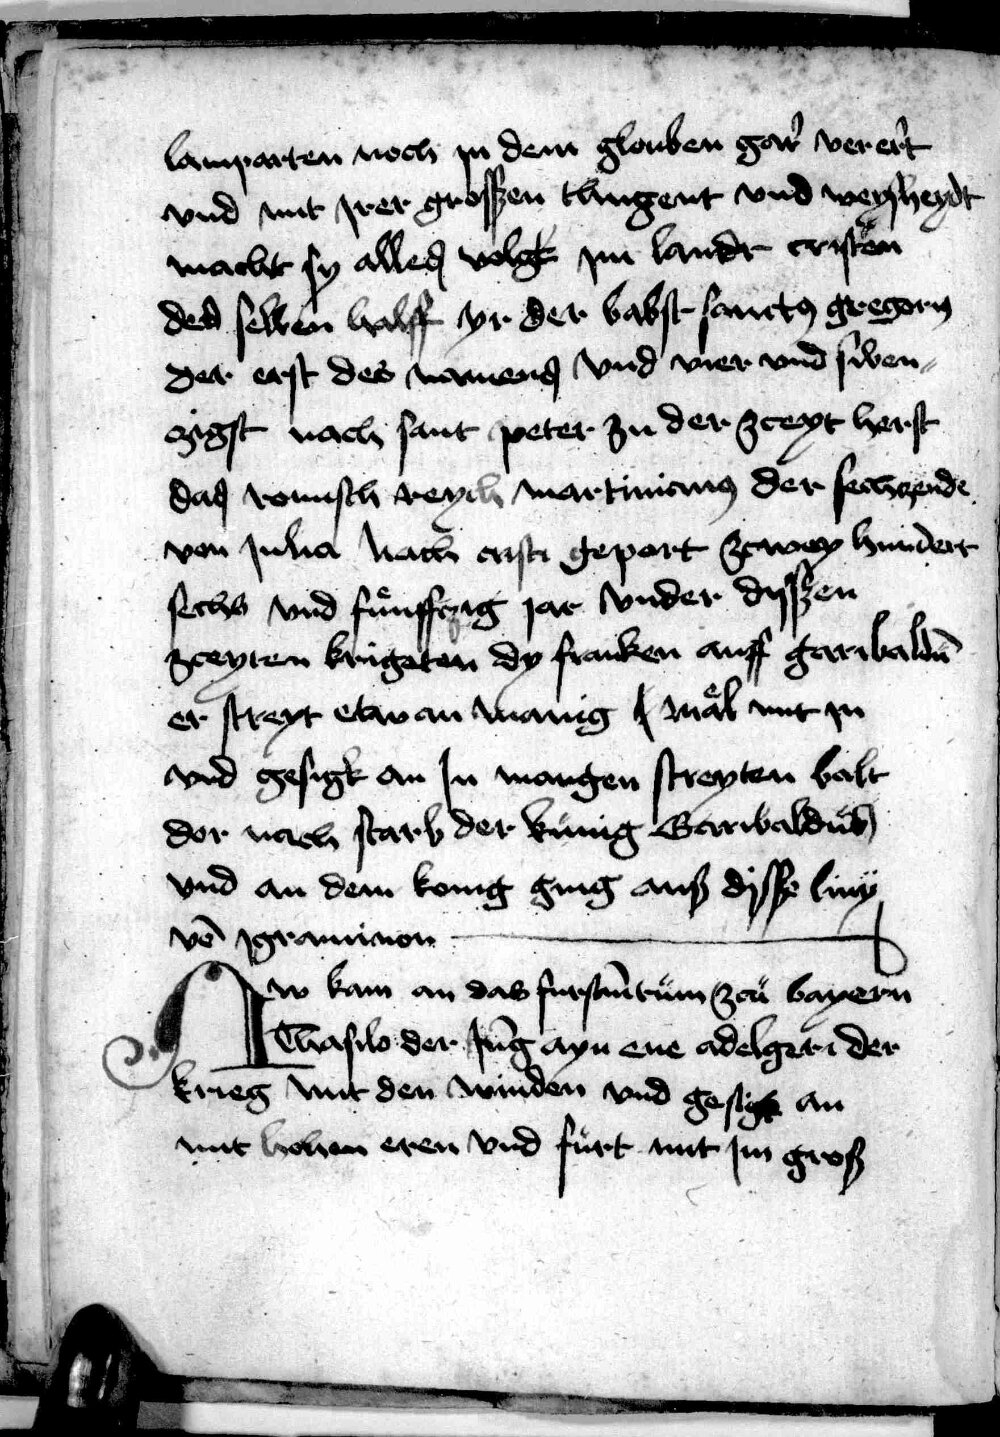 lamparten noch jn dem glouben gar verert
vnd mit jrer grosszen thugent vnd weyszheydt
macht sy alles volgk im landt cristen
des selben halff yr der babst sanctus gregorius
der erst des namens vnd vier vnd siben„
czigst nach sant peter zu der zceyt herst
das romisch reych martinianus der sechczende
von Julia Nach cristi geport zcwey hundert
sechs vnd fünffczig jar vnder dysszen
zceyten krigeten dy franken auff garibaldū
er streyt etwan manig mäl mit jn
vnd gesigt an In mangen streyten balt
dor nach starb der künig Garibaldus
vnd an dem konig ging ausz dyssze liny
vō jgraminon
Nw kam an das furstūtum zcü bayern
Thasilo der Jūg ayn ene adelgeri der
krieg mit den winden vnd gesigt an
mit hohen eren vnd fürt mit Im grosz